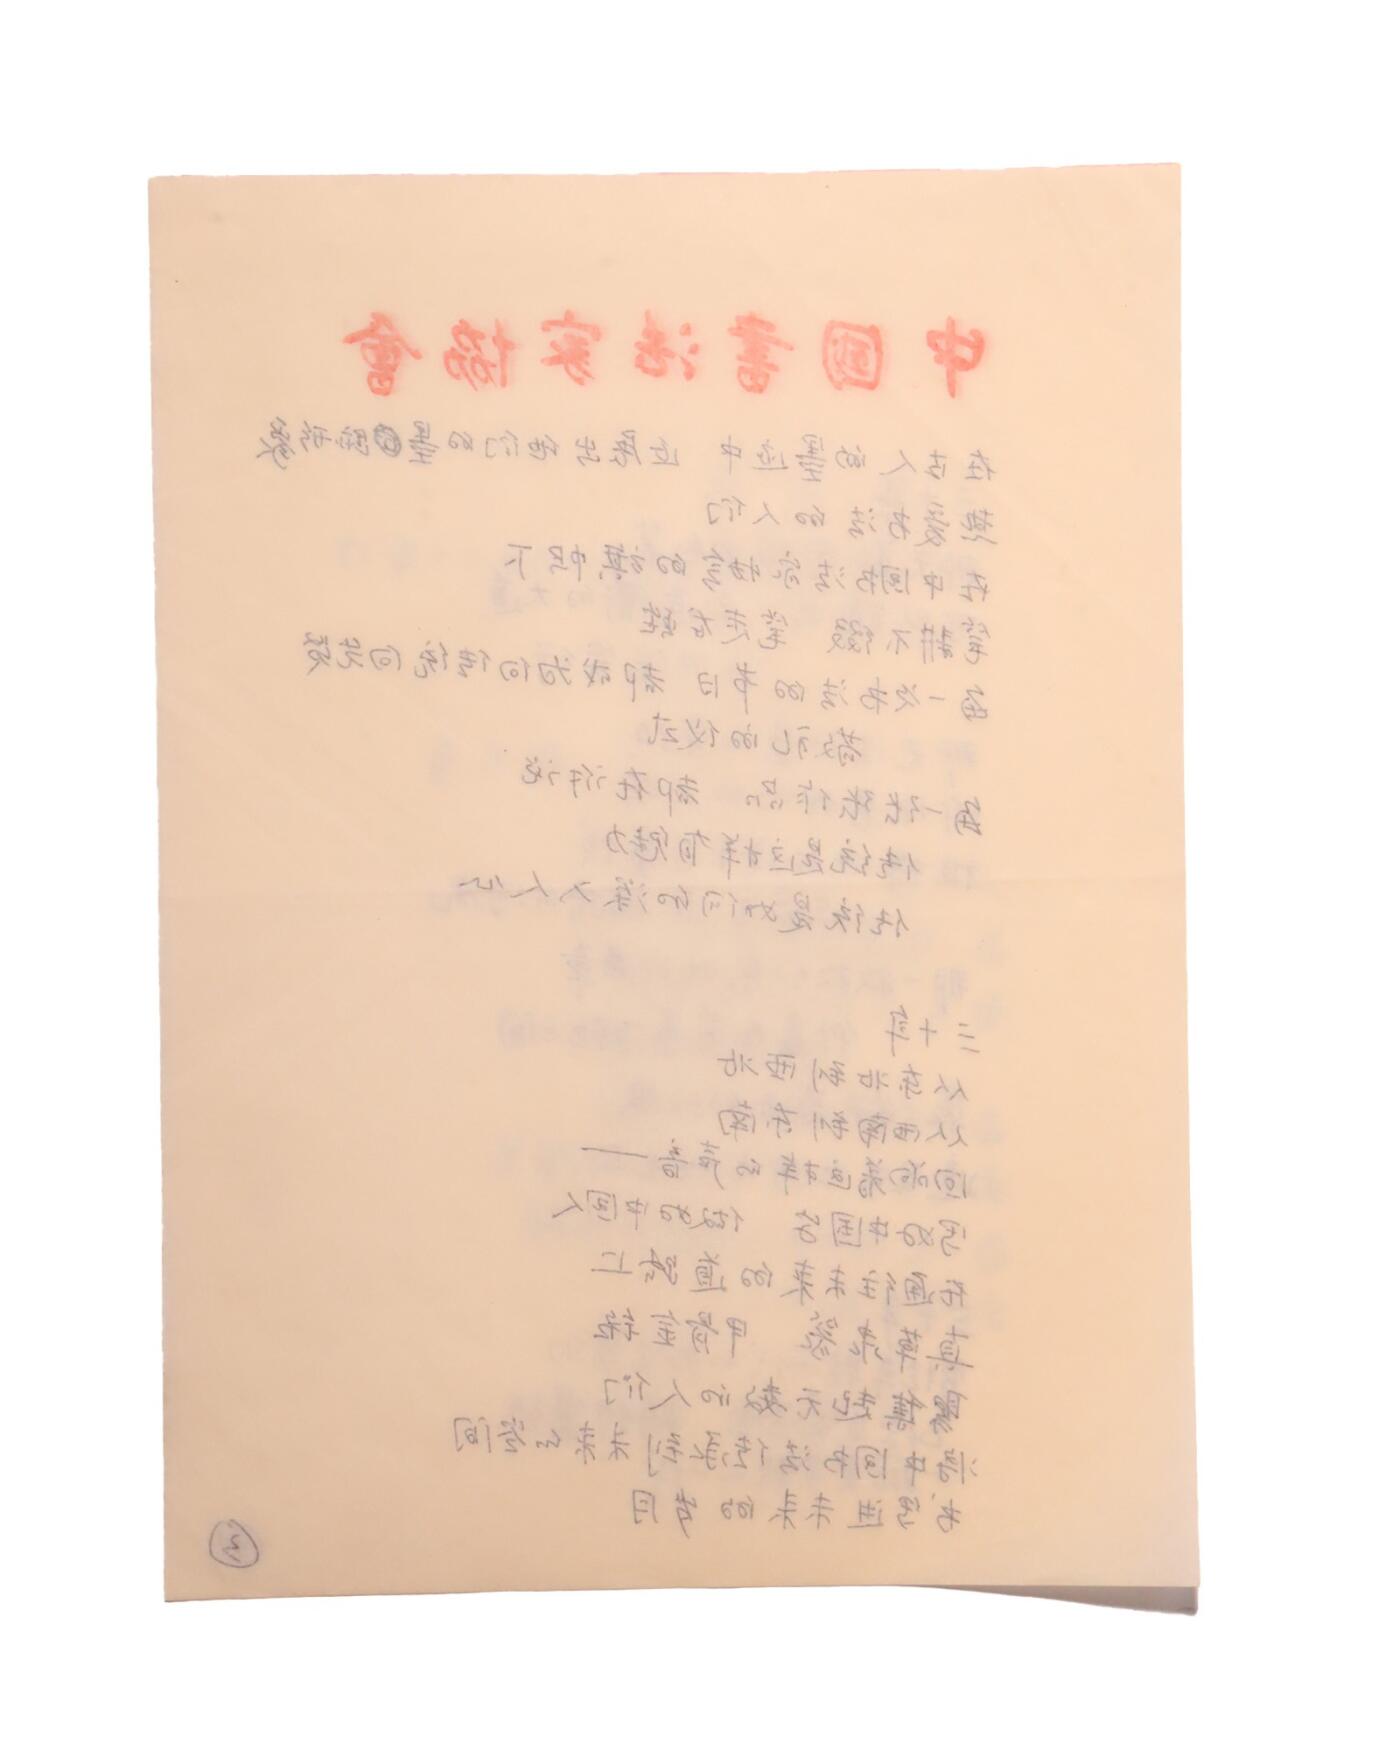 中國書法家協會
在古人的墨迹中 也展出他们的墨踪所缀
热爱书法的人们
在中国书法家协会的旗帜下
笔耕不辍 笔走龙蛇
每一次书法的节日 都成为向传统向先贤
敬礼的仪式
每一张作品 都在诉说
传统是这样有魅力
传统是如何的深入人心
三十年
从东北到西北
从西南到东南
回响着这样的声音——
写好中国字 做好中国人
在通往未来的道路上
真草隶篆 甲骨金铭
聚集起无数的人们
将中国书法传承到未来的空间
书写进未来的岁月
3